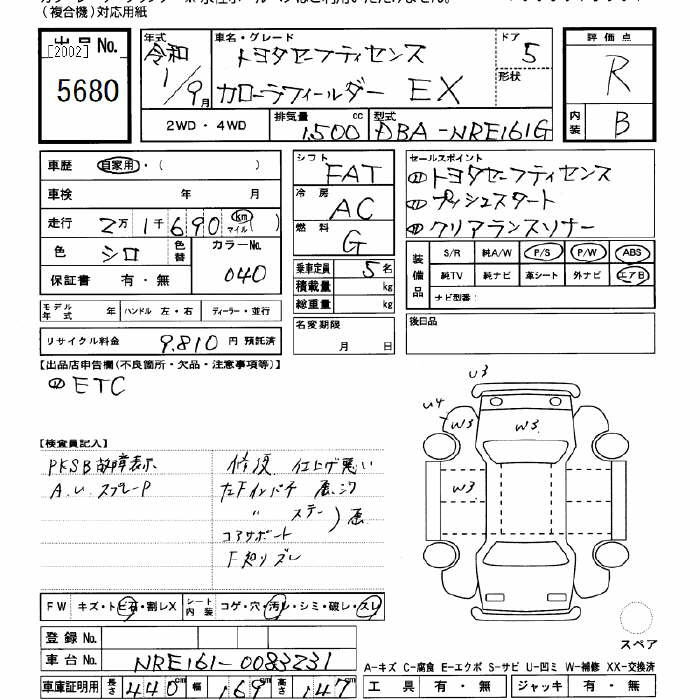 (複合機)対応用紙
出品No.
[2002]
5680
年式 令和 1/9月
車名・グレード トヨタセーフティセンス
カローラフィールダー EX
ドア 5
形状
評価点 R
内装 B
2WD・4WD
排気量 1500 cc
型式 DBA-NRE161G
車歴 自家用・( )
車検 年 月
走行 2万1千690 km マイル ( )
色 シロ 色替
カラーNo. 040
保証書 有・無
モデル年式 年
ハンドル 左・右
ディーラー・並行
リサイクル料金 9,810 円 預託済
シフト FAT
冷房 AC
燃料 G
乗車定員 5名
積載量 kg
総重量 kg
名変期限
月 日
セールスポイント
トヨタセーフティセンス
プッシュスタート
クリアランスソナー
装備品
S/R 純A/W P/S P/W ABS
純TV 純ナビ 革シート 外ナビ エアB
ナビ型番:
後日品
【出品店申告欄(不良箇所・欠品・注意事項等)】
ETC
【検査員記入】
PKSB故障表示
A.U.スプレーP
修復 仕上げ悪い
左Fインパチ
〃 ステー
コアサポート
F廻りズレ
U3
U4
W3
W3
W3
FW キズ・トビ石・割レX
シート内装 コゲ・穴・汚レ・シミ・破レ・スレ
登録No.
車台No. NRE161-0083231
車庫証明用 長さ 440cm 幅 169cm 高さ 147cm
スペア
A-キズ C-腐食 E-エクボ S-サビ U-凹ミ W-補修 XX-交換済
工具 有・無 ジャッキ 有・無